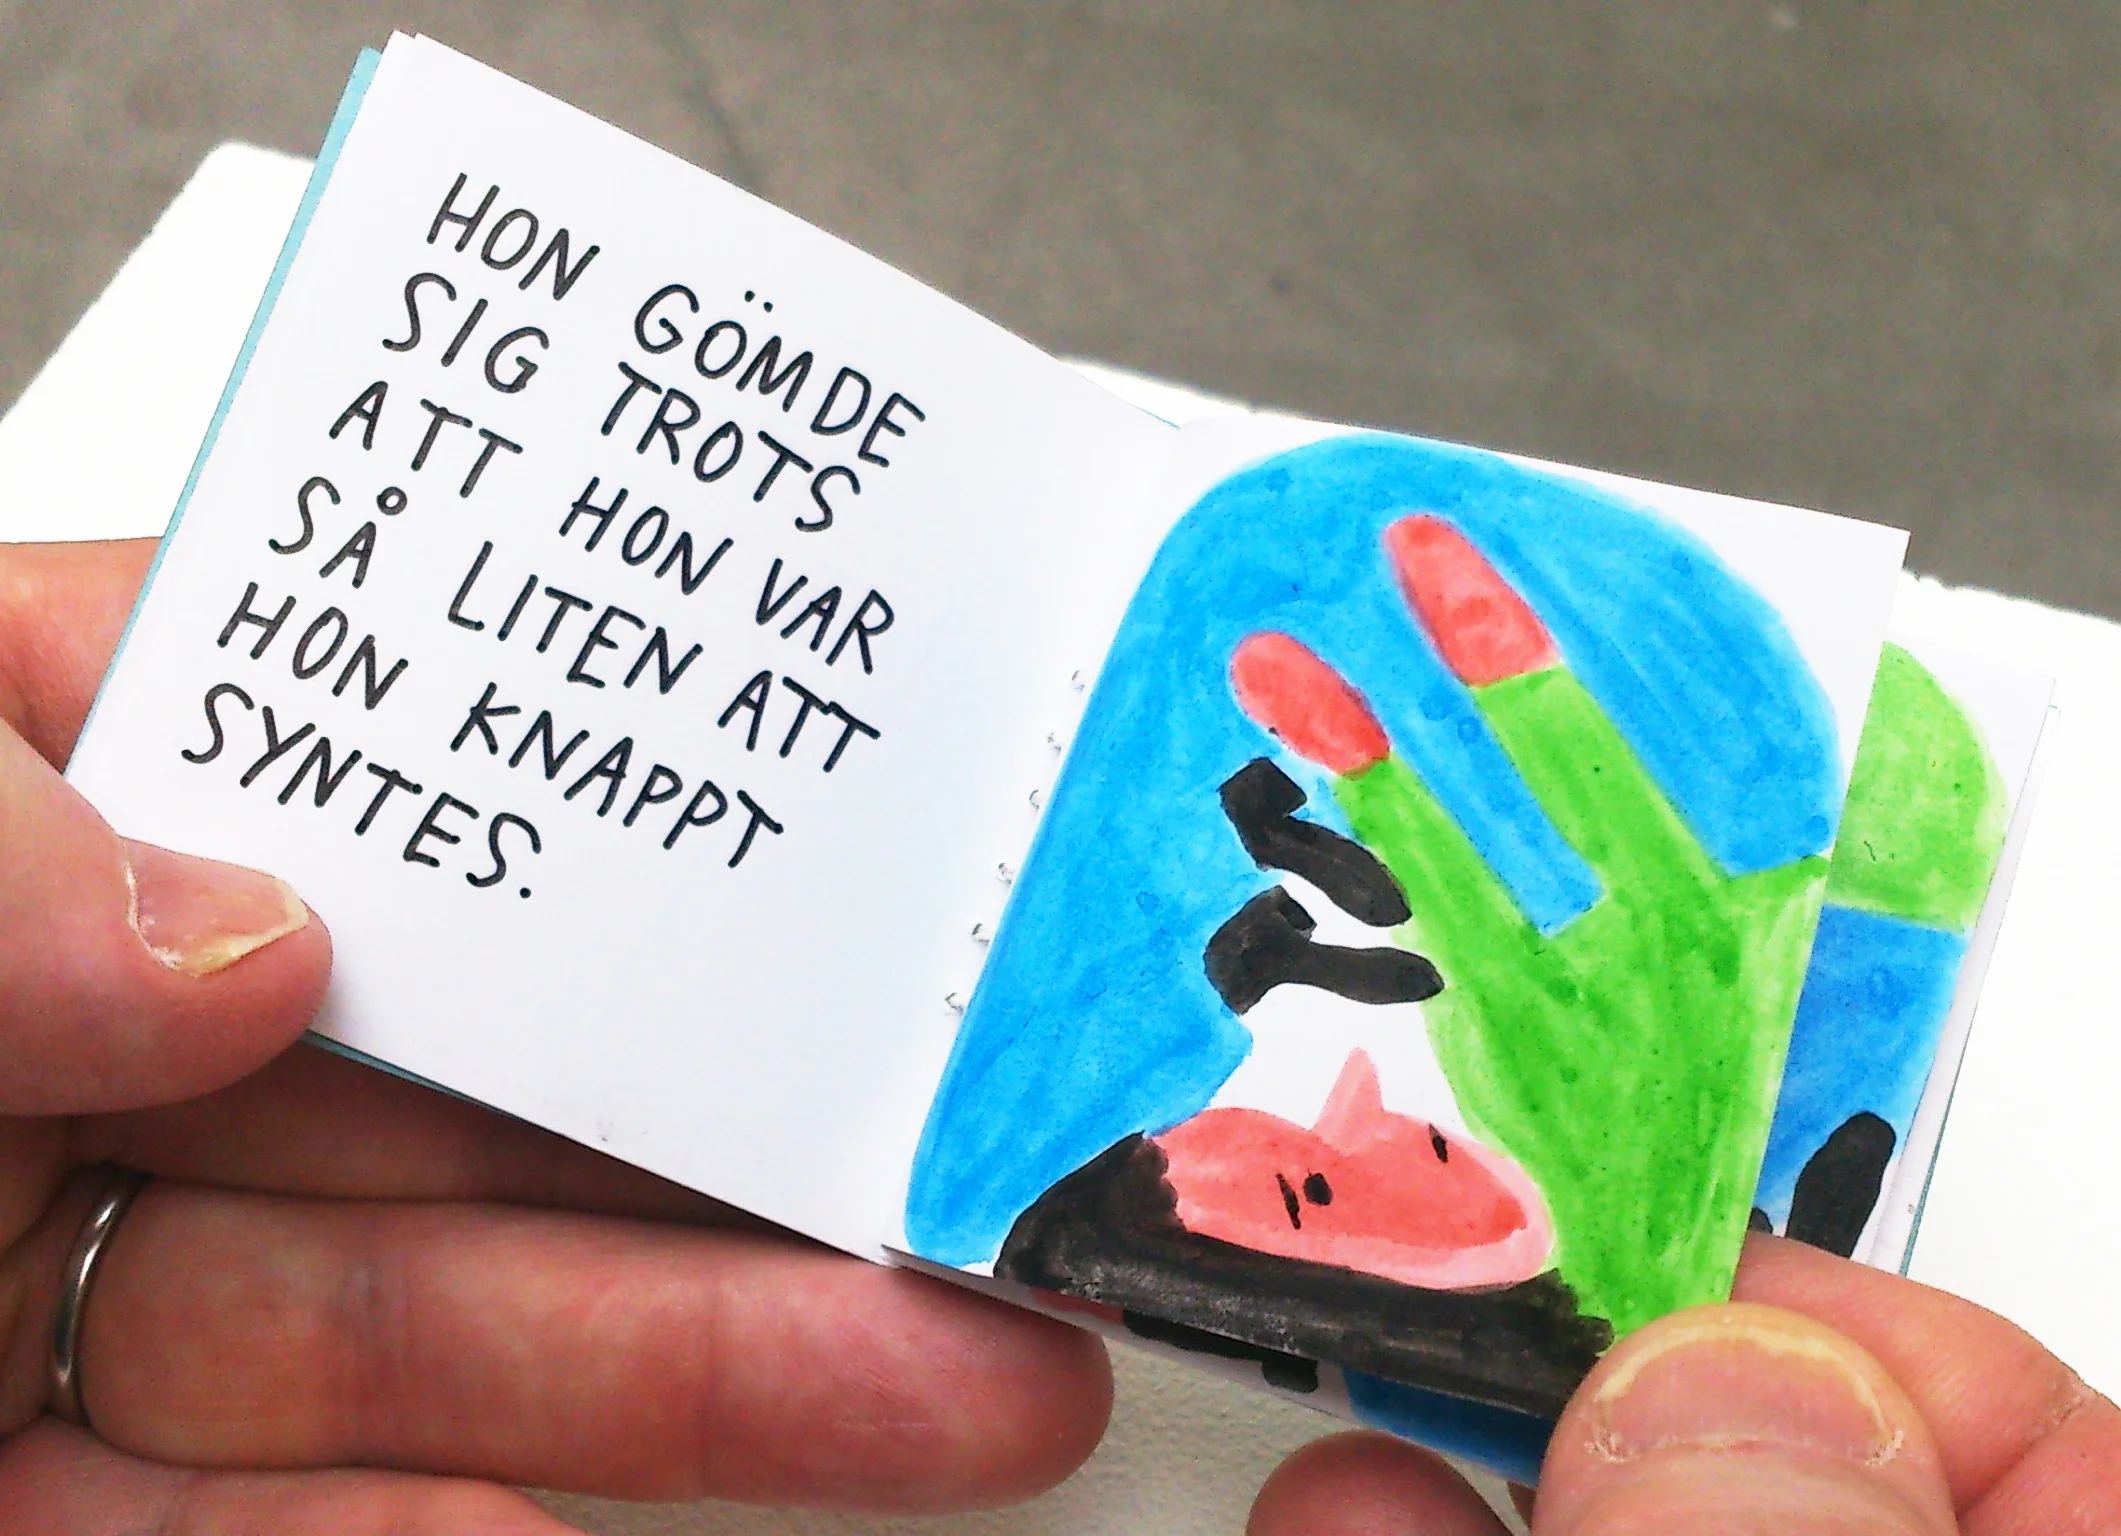 HON GÖMDE
SIG TROTS
ATT HON VAR
SÅ LITEN ATT
HON KNAPPT
SYNTES.